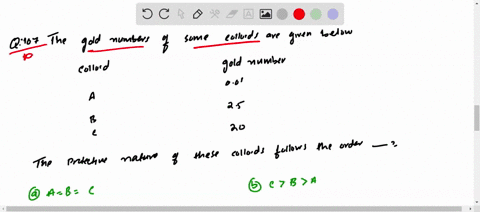 Q:107 The gold numbers of some colloids are given below
colloid gold number
A 0.01
B 2.5
C 20
The protective nature of these colloids follows the order — ?
(a) A = B = C (b) C > B > A